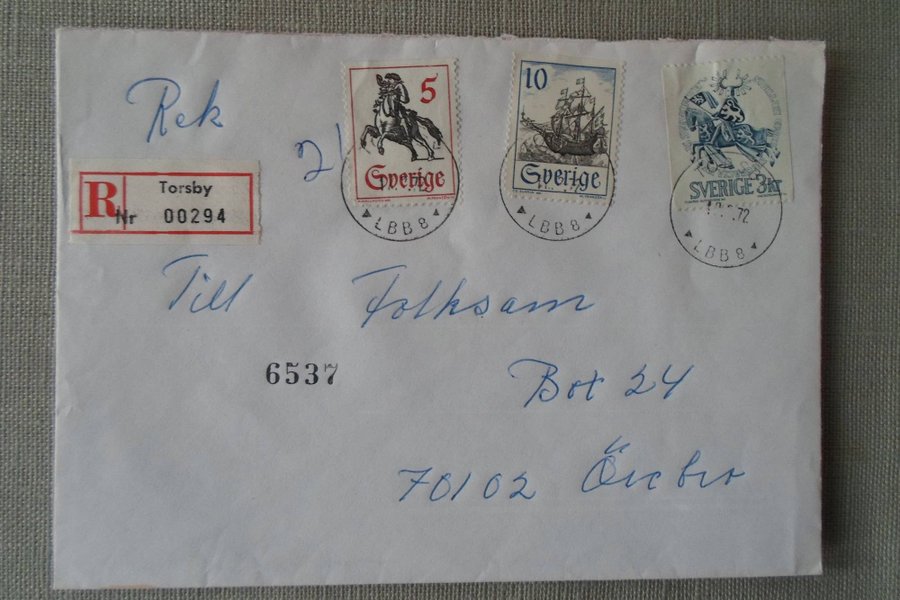 Rek
21
R Torsby
Nr 00294
5
Sverige
10
Sverige
SVERIGE 3kr
72
LBB 8
LBB 8
LBB 8
Till Folksam
6537
Box 24
70102 Örebro